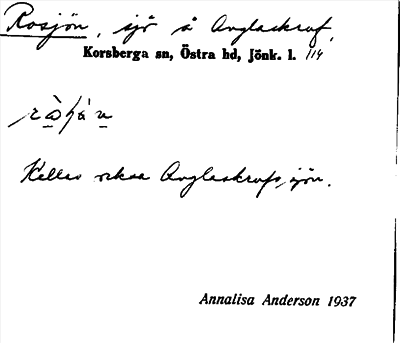 Rosjön, sjö å Anglaskruf,
Korsberga sn, Östra hd, Jönk. l. 114
Kallas också Anglaskrufssjön.
Annalisa Anderson 1937